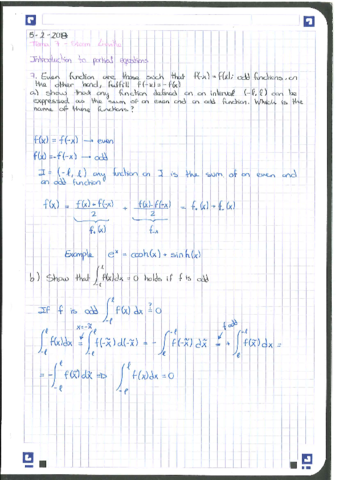 5-2-2018
Introduction to partial equations
7. Even function are those such that f(-x) = f(x); odd functions, on
the other hand, fulfill f(-x) = -f(x)
a) Show that any function defined on an interval (-l, l) can be
expressed as the sum of an even and an odd function. Which is the
name of these functions?
f(x) = f(-x) → even
f(x) = -f(-x) → odd
I = (-l, l) any function on I is the sum of an even and
an odd function
f(x) = (f(x) + f(-x))/2 + (f(x) - f(-x))/2 = f₊(x) + f₋(x)
f₊(x) f₋x
Example eˣ = cosh(x) + sinh(x)
b) Show that ∫₋ₗˡ f(x)dx = 0 holds if f is odd
If f is odd ∫₋ₗˡ f(x) dx ?= 0
x=-x̃ f odd
∫₋ₗˡ f(x)dx = ∫ₗ⁻ˡ f(-x̃) d(-x̃) = -∫ₗ⁻ˡ f(-x̃) dx̃ = +∫ₗ⁻ˡ f(x̃) dx̃ =
= -∫₋ₗˡ f(x̃) dx̃ ⇒ ∫₋ₗˡ f(x) dx = 0